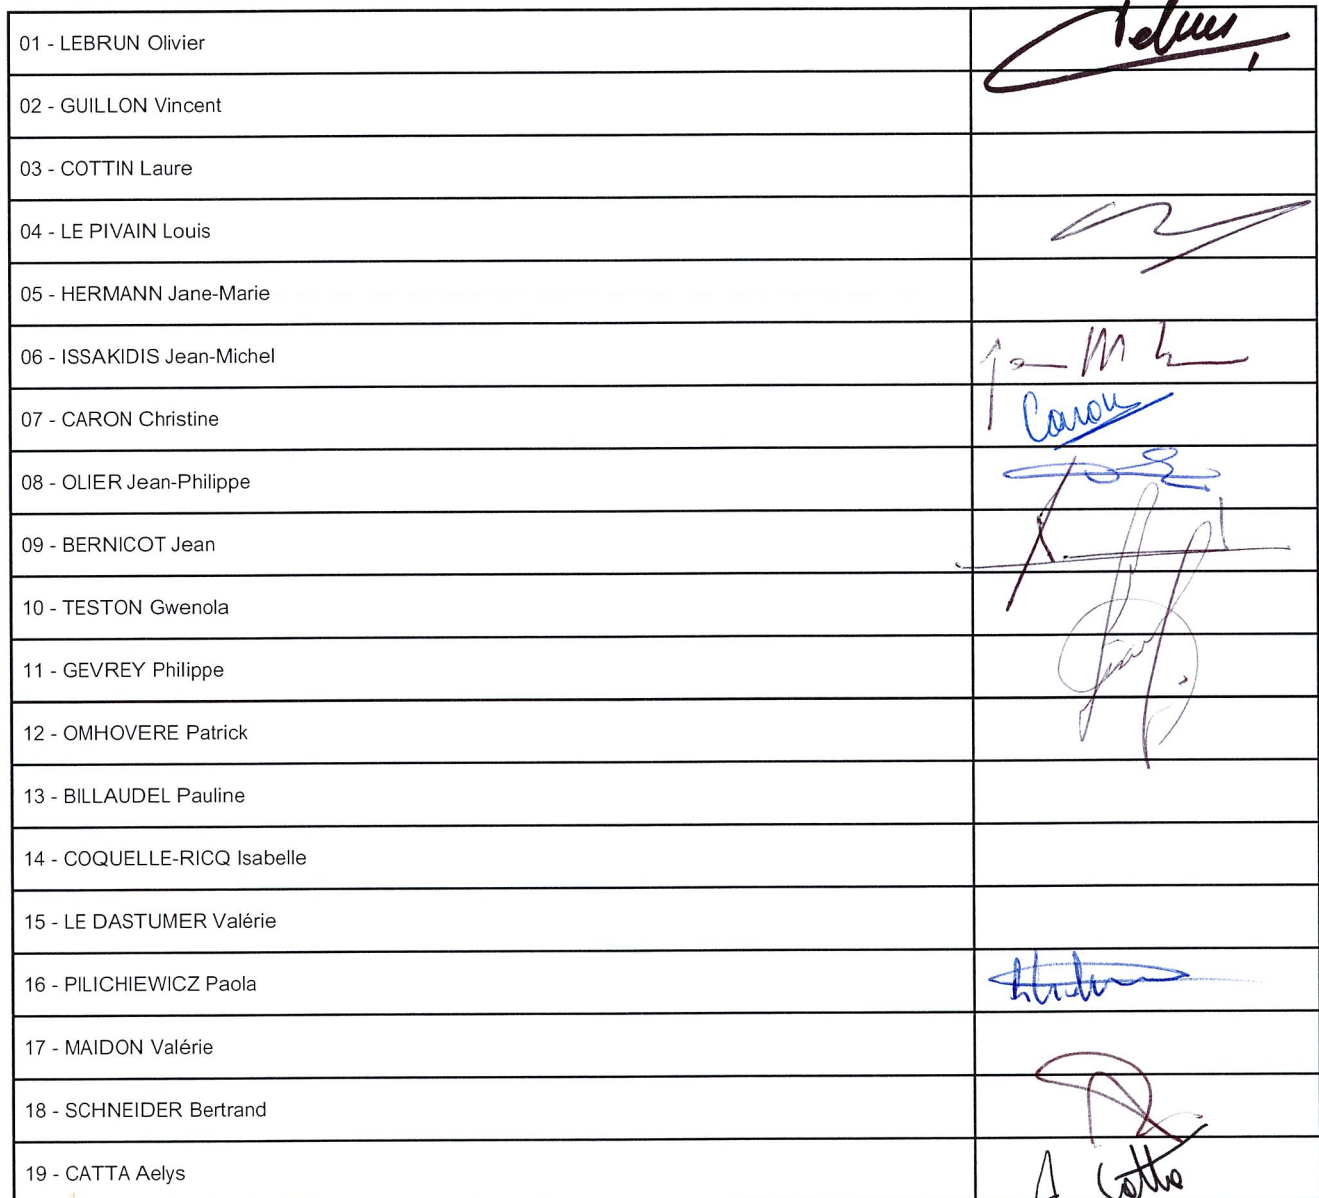 01 - LEBRUN Olivier
Lebrun
02 - GUILLON Vincent
03 - COTTIN Laure
04 - LE PIVAIN Louis
05 - HERMANN Jane-Marie
06 - ISSAKIDIS Jean-Michel
07 - CARON Christine
Caron
08 - OLIER Jean-Philippe
09 - BERNICOT Jean
10 - TESTON Gwenola
11 - GEVREY Philippe
12 - OMHOVERE Patrick
13 - BILLAUDEL Pauline
14 - COQUELLE-RICQ Isabelle
15 - LE DASTUMER Valérie
16 - PILICHIEWICZ Paola
17 - MAIDON Valérie
18 - SCHNEIDER Bertrand
19 - CATTA Aelys
A Catta